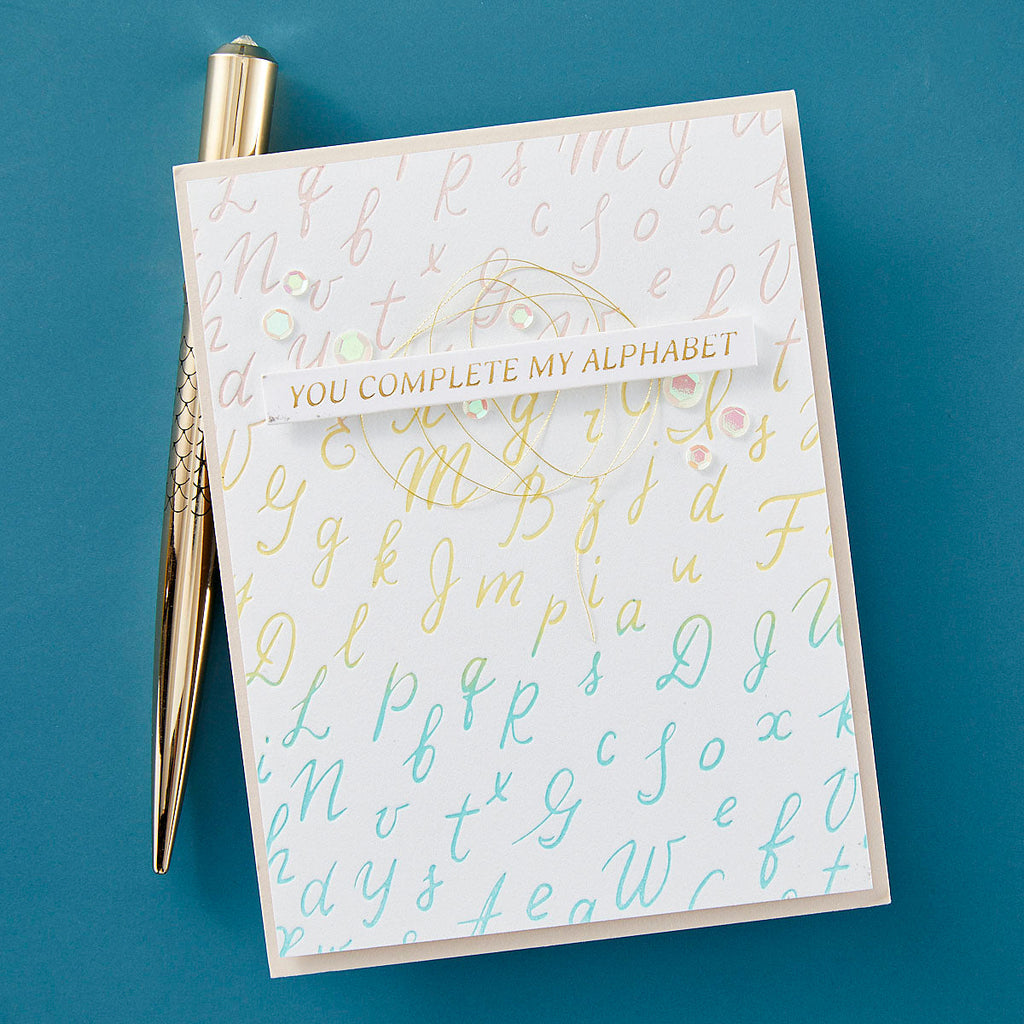 L q p R s M J u
b c S o x k
N v x G e f V
h t W
d y
YOU COMPLETE MY ALPHABET
E g r l s t
G M B z j d
g k J m i u F
D l p a
L p q R s D J U
i b c S o x k
N v t x G e f V
h d y s A e a W t